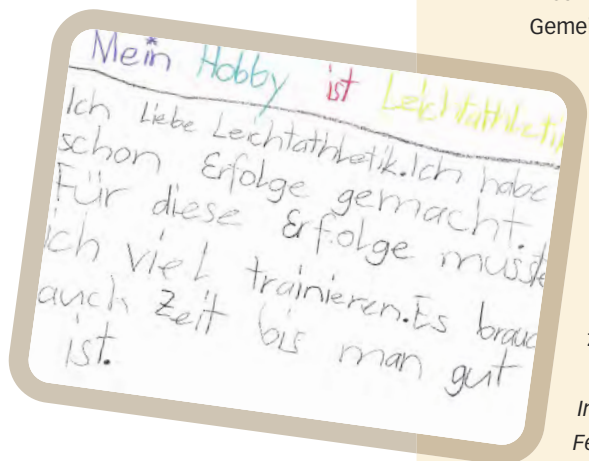 Gemei
Mein Hobby ist Leichtathletik
Ich Liebe Leichtathletik. Ich habe
schon Erfolge gemacht.
Für diese Erfolge musste
ich viel trainieren. Es brauc
auch Zeit bis man gut
ist.
z
In
Fe